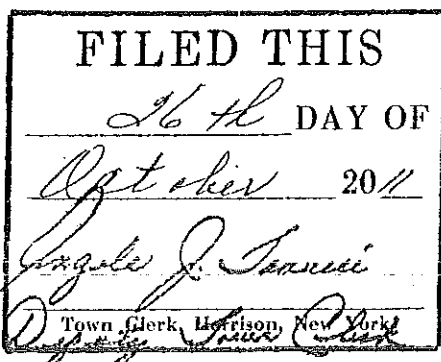 FILED THIS
26th DAY OF
October 2011
J.
Town Clerk, Harrison, New York
Deputy Town Clerk